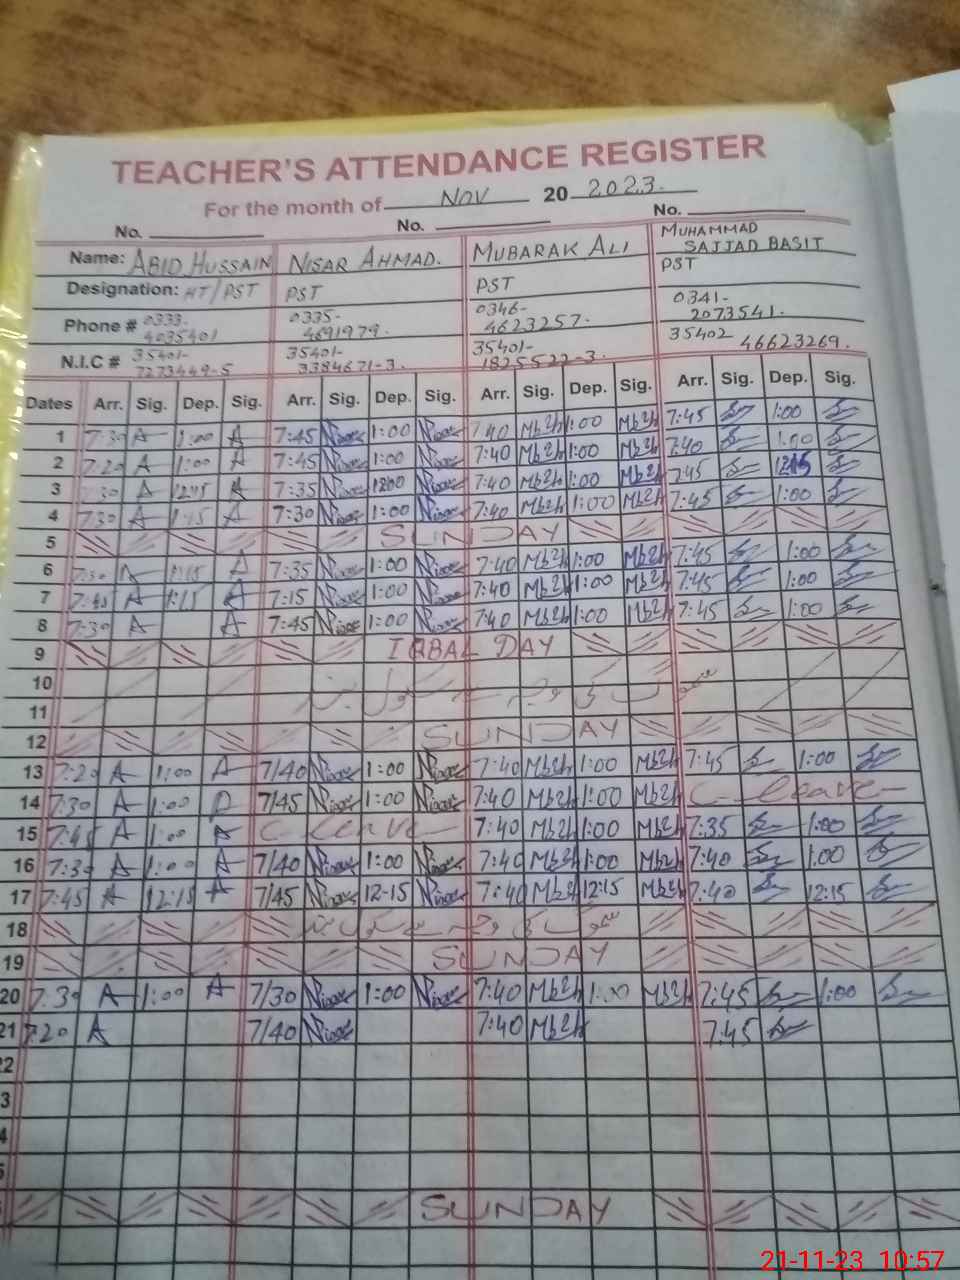 TEACHER'S ATTENDANCE REGISTER
For the month of Nov 20 2023.
No. No. No.
Name: ABID HUSSAIN NISAR AHMAD. MUBARAK ALI MUHAMMAD SAJJAD BASIT
Designation: HT/PST PST PST PST
Phone # 0333-4035401 0335-4691979. 0346-4623257. 0341-2073541.
N.I.C # 35401-7273449-5 35401-3384671-3. 35401-1825522-3. 35402 46623269.
Dates Arr. Sig. Dep. Sig. Arr. Sig. Dep. Sig. Arr. Sig. Dep. Sig. Arr. Sig. Dep. Sig.
1 7:30 A 1:00 A 7:45 Nisar 1:00 Nisar 7:40 1:00 7:45 1:00
2 7:20 A 1:00 A 7:45 Nisar 1:00 Nisar 7:40 1:00 7:40 1:00
3 A 12:15 A 7:35 Nisar Nisar 7:40 1:00 7:45
4 7:30 A 1:15 A 7:30 Nisar 1:00 Nisar 7:40 1:00 7:45 1:00
5 SUNDAY
6 7:30 A 1:15 A 7:35 Nisar 1:00 Nisar 7:40 1:00 7:45 1:00
7 7:45 A 1:15 A 7:15 Nisar 1:00 Nisar 7:40 1:00 7:45 1:00
8 7:30 A A 7:45 Nisar 1:00 Nisar 7:40 1:00 7:45 1:00
9 IQBAL DAY
10
11
12 SUNDAY
13 7:20 A 1:00 A 7/40 Nisar 1:00 Nisar 7:40 1:00 7:45 1:00
14 7:30 A 1:00 7/45 Nisar 1:00 Nisar 7:40 1:00 C-leave
15 7:45 A 1:00 A C-leave 7:40 1:00 7:35 1:00
16 7:30 A 1:00 A 7/40 Nisar 1:00 Nisar 7:40 1:00 7:40 1:00
17 7:45 A 12:15 A 7/45 Nisar 12-15 Nisar 7:40 12:15 7:40 12:15
18
19 SUNDAY
20 7:30 A 1:00 A 7/30 Nisar 1:00 Nisar 7:40 1:00 7:45 1:00
21 7:20 A 7/40 Nisar 7:40 7:45
22
3
4
5
SUNDAY
21-11-23 10:57